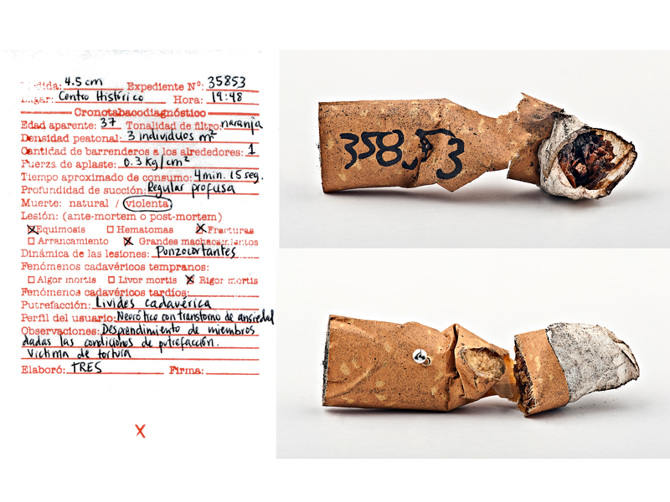 4.5 cm Expediente Nº: 35853
Centro Histórico Hora: 19:48
Cronotabacodiagnóstico
Edad aparente: 37 Tonalidad de filtro: naranja
Densidad peatonal: 3 individuos m²
Cantidad de barrenderos a los alrededores: 1
Fuerza de aplaste: 0.3 kg/cm²
Tiempo aproximado de consumo: 4min. 15 seg.
Profundidad de succión: Regular profusa
Muerte: natural / violenta
Lesión: (ante-mortem o post-mortem)
Equimosis Hematomas Fracturas
Arrancamiento Grandes machacamientos
Dinámica de las lesiones: Punzocortantes
Fenómenos cadavéricos tempranos:
Algor mortis Livor mortis Rigor mortis
Fenómenos cadavéricos tardíos:
Putrefacción: Livides cadavérica
Perfil del usuario: Neurótico con transtorno de ansiedad
Observaciones: Desprendimiento de miembros
dadas las condiciones de putrefacción.
Victima de tortura
Elaboró: TRES Firma:
X
35853